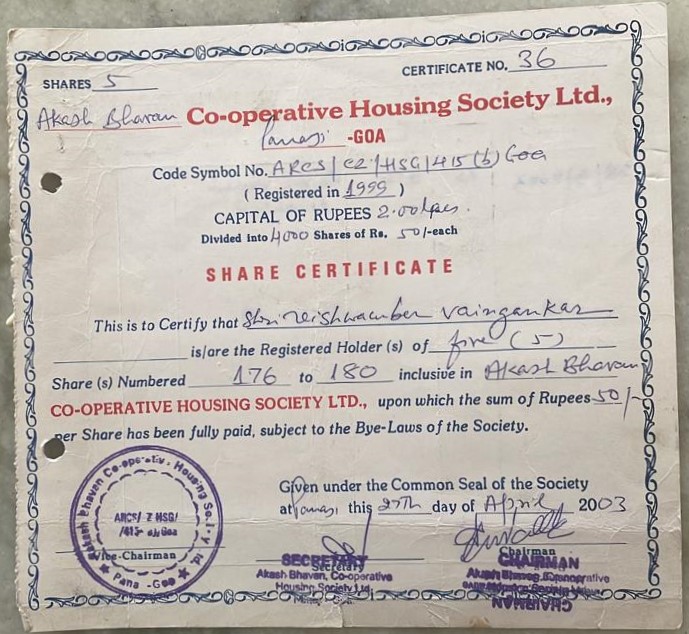 SHARES 5
CERTIFICATE NO. 36
Akash Bhavan Co-operative Housing Society Ltd.,
Panaji -GOA
Code Symbol No. ARCS/CZ/HSG/415(b) Goa
( Registered in 1999 )
CAPITAL OF RUPEES 2.00 lacs.
Divided into 4000 Shares of Rs. 50/-each
SHARE CERTIFICATE
This is to Certify that Shri Vishwamber Vaingankar
is/are the Registered Holder (s) of five (5)
Share (s) Numbered 176 to 180 inclusive in Akash Bhavan
CO-OPERATIVE HOUSING SOCIETY LTD., upon which the sum of Rupees 50/-
per Share has been fully paid, subject to the Bye-Laws of the Society.
Given under the Common Seal of the Society
at Panaji this 27th day of April 2003
Akash Bhaven Co-operative Housing Society Ltd.
ARCS/ Z HSG/
/415- Goa
Pana -Goa
Vice-Chairman
Secretary
SECRETARY
Akash Bhavan, Co-operative
Housing Society Ltd.
Chairman
CHAIRMAN
Akash Bhavan, Co-operative
CHAIRMAN